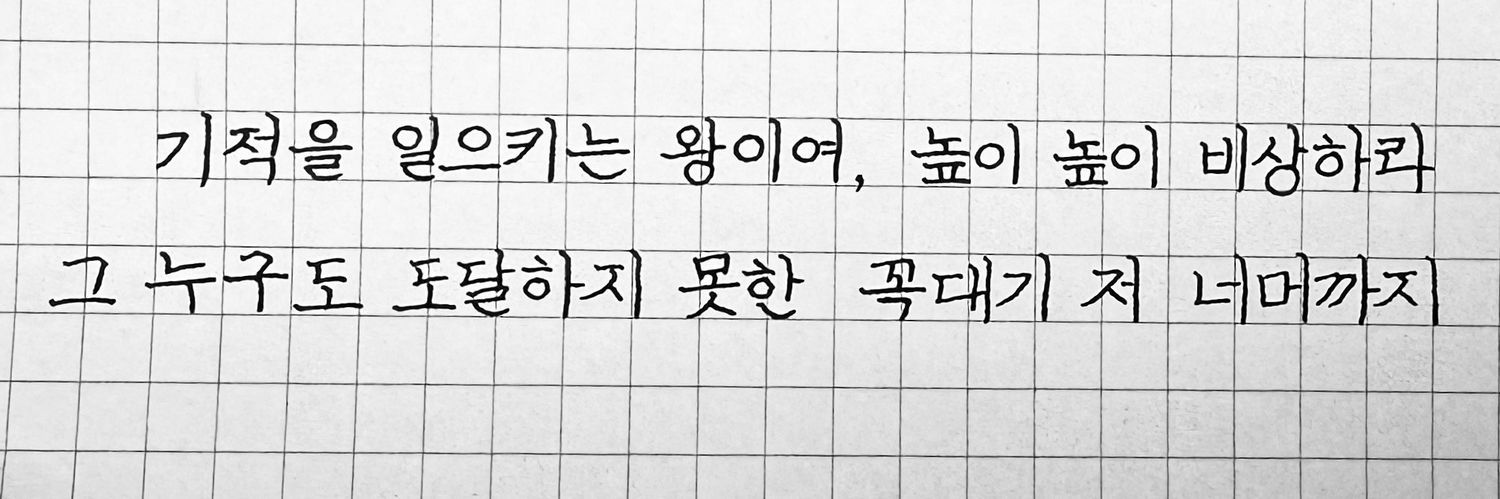 기적을 일으키는 왕이여, 높이 높이 비상하라
그 누구도 도달하지 못한 꼭대기 저 너머까지